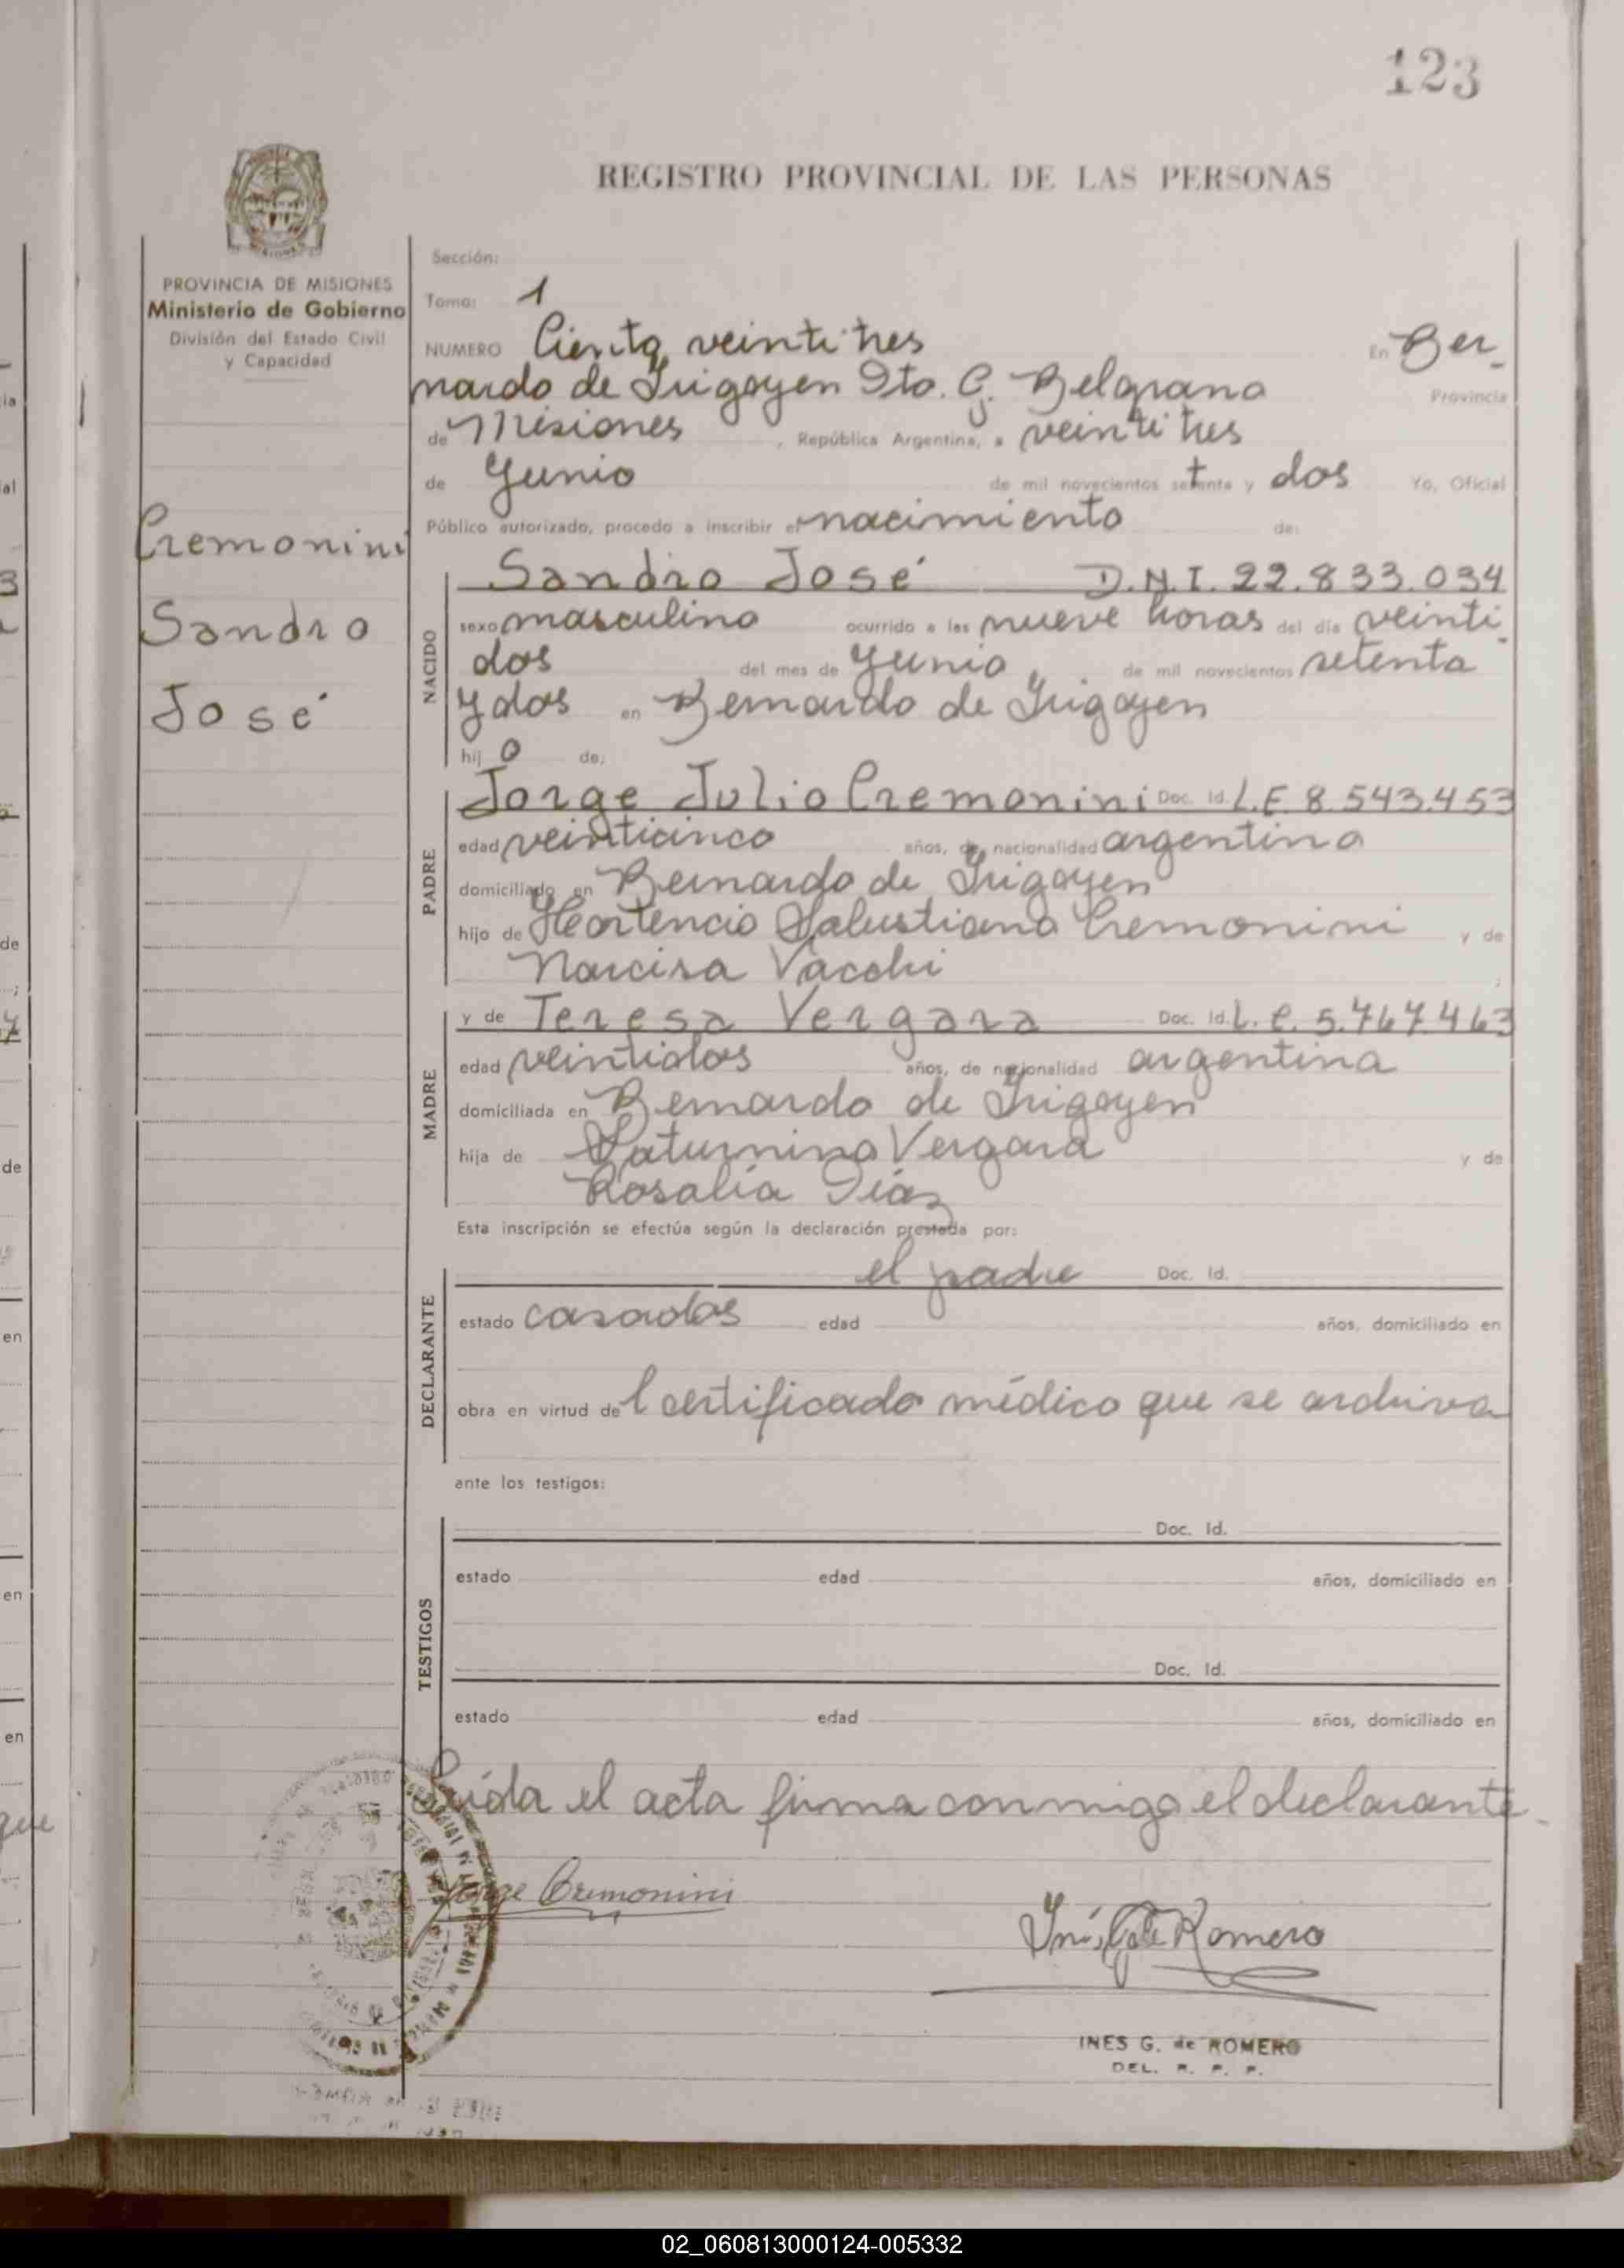 123
REGISTRO PROVINCIAL DE LAS PERSONAS
PROVINCIA DE MISIONES
Ministerio de Gobierno
División del Estado Civil
y Capacidad
Sección:
Tomo: 1
NUMERO Ciento veintitres En Ber-
nardo de Irigoyen Dto. G. Belgrano Provincia
de Misiones, República Argentina, a veintitres
de Junio de mil novecientos setenta y dos Yo, Oficial
Público autorizado, procedo a inscribir el nacimiento de:
Cremonini
Sandro
José
NACIDO
Sandro José D.N.I. 22.833.034
sexo masculino ocurrido a las nueve horas del día veinti-
dos del mes de Junio de mil novecientos setenta
y dos en Bernardo de Irigoyen
hijo de:
PADRE
Jorge Julio Cremonini Doc. Id. L.E 8.543.453
edad veinticinco años, de nacionalidad argentina
domiciliado en Bernardo de Irigoyen
hijo de Hortencio Salustiano Cremonini y de
Narcisa Vacchi ;
MADRE
y de Teresa Vergara Doc. Id. L.C. 5.767.463
edad veintidos años, de nacionalidad argentina
domiciliada en Bernardo de Irigoyen
hija de Saturnino Vergara y de
Rosalía Díaz
Esta inscripción se efectúa según la declaración prestada por:
DECLARANTE
el padre Doc. Id.
estado casados edad años, domiciliado en
obra en virtud del certificado médico que se archiva
ante los testigos:
TESTIGOS
Doc. Id.
estado edad años, domiciliado en
Doc. Id.
estado edad años, domiciliado en
Leída el acta firma conmigo el declarante.
Jorge Cremonini
Inés G. de Romero
INES G. de ROMERO
DEL. R. P. P.
02_060813000124-005332